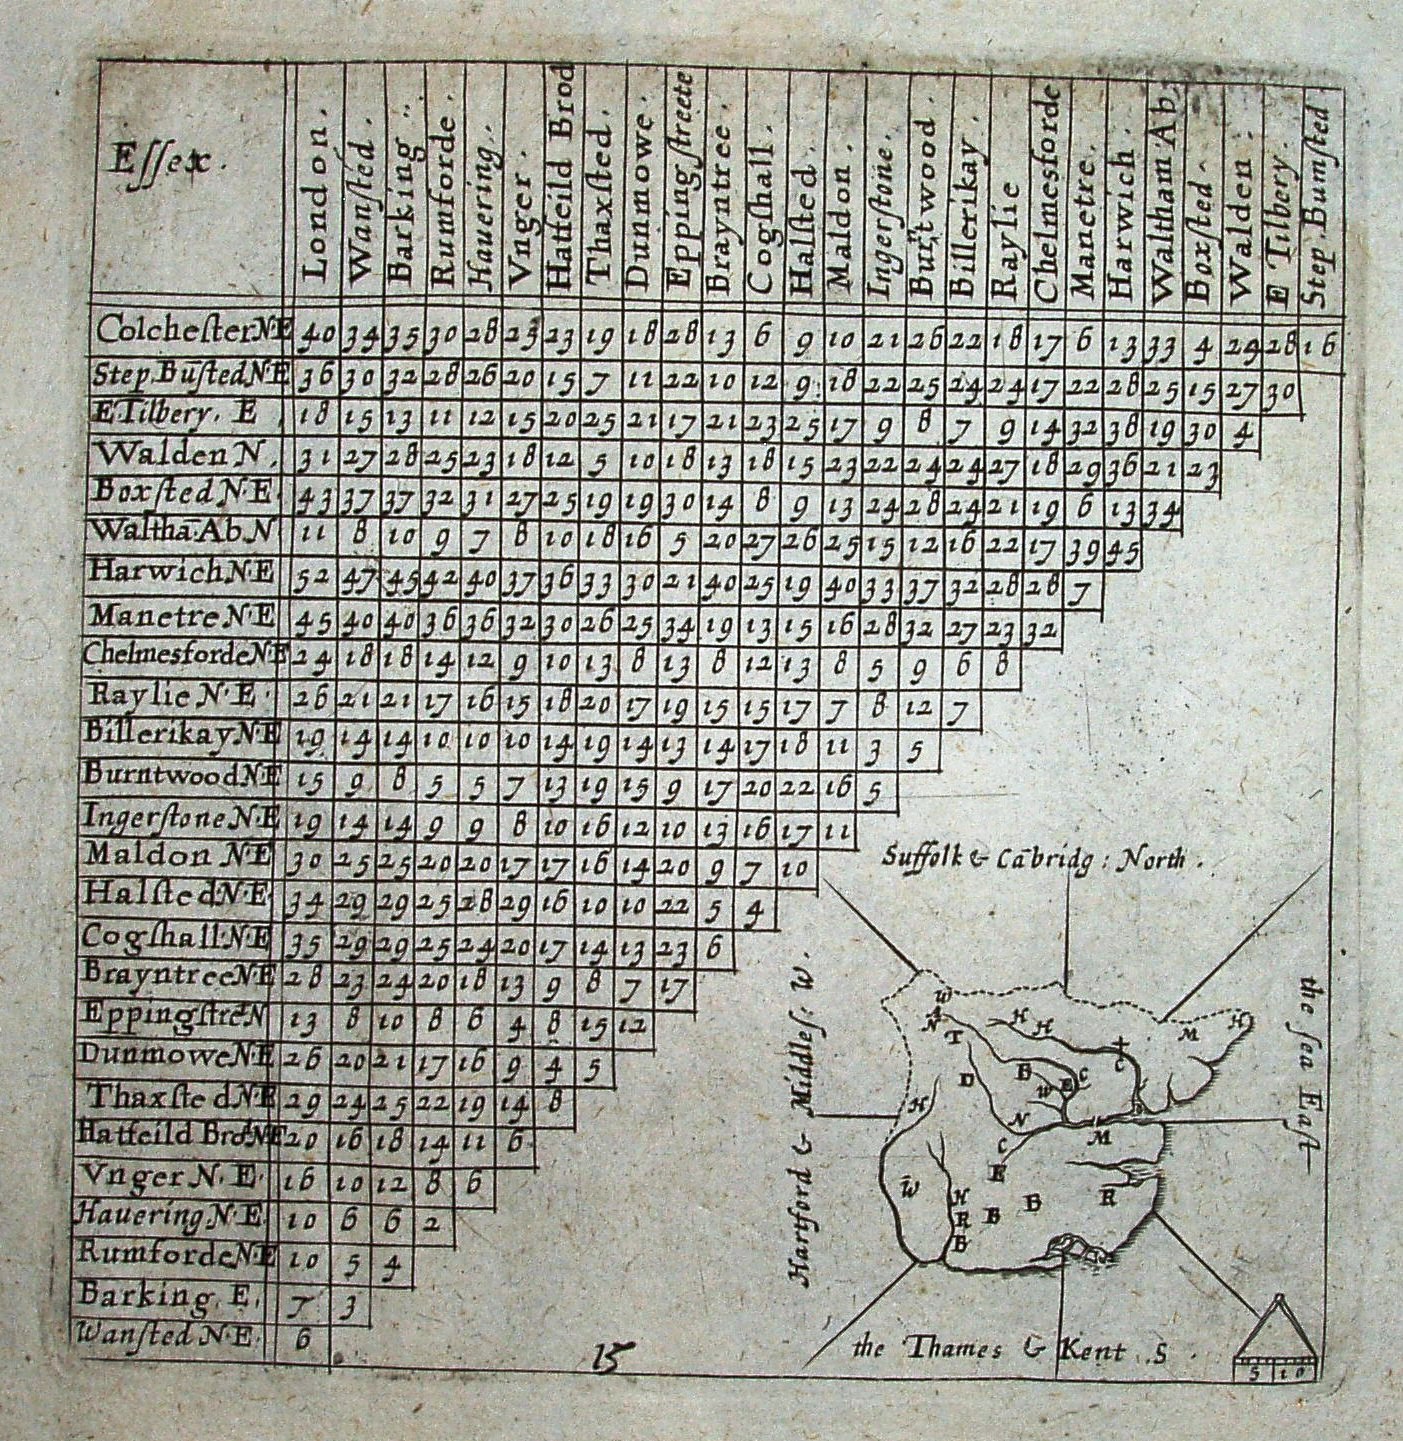 Eſſex.
London. Wanſted. Barking. Rumforde. Hauering. Vnger. Hatfeild Brod Thaxſted. Dunmowe. Epping ſtreete Brayntree. Cogſhall. Halſted. Maldon. Ingerſtone. Burtwood. Billerikay. Raylie Chelmesforde Manetre. Harwich. Waltham Ab. Boxſted. Walden. E Tilbery. Step. Bumſted
Colcheſter N·E 40 34 35 30 28 23 23 19 18 28 13 6 9 10 21 26 22 18 17 6 13 33 4 29 28 16
Step. Būſted N·E 36 30 32 28 26 20 15 7 11 22 10 12 9 18 22 25 24 24 17 22 28 25 15 27 30
E Tilbery. E 18 15 13 11 12 15 20 25 21 17 21 23 25 17 9 8 7 9 14 32 38 19 30 4
Walden N. 31 27 28 25 23 18 12 5 10 18 13 18 15 23 22 24 24 27 18 29 36 21 23
Boxſted N·E. 43 37 37 32 31 27 25 19 19 30 14 8 9 13 24 28 24 21 19 6 13 34
Walthā. Ab. N 11 8 10 9 7 8 10 18 16 5 20 27 26 25 15 12 16 22 17 39 45
Harwich N·E 52 47 45 42 40 37 36 33 30 21 40 25 19 40 33 37 32 28 28 7
Manetre N·E 45 40 40 36 36 32 30 26 25 34 19 13 15 16 28 32 27 23 32
Chelmesforde N·E 24 18 18 14 12 9 10 13 8 13 8 12 13 8 5 9 6 8
Raylie N·E· 26 21 21 17 16 15 18 20 17 19 15 15 17 7 8 12 7
Billerikay N·E 19 14 14 10 10 10 14 19 14 13 14 17 18 11 3 5
Burntwood N·E 15 9 8 5 5 7 13 19 15 9 17 20 22 16 5
Ingerſtone N·E 19 14 14 9 9 8 10 16 12 10 13 16 17 11
Maldon N·E 30 25 25 20 20 17 17 16 14 20 9 7 10
Halſted N·E· 34 29 29 25 28 29 16 10 10 22 5 4
Cogſhall N·E 35 29 29 25 24 20 17 14 13 23 6
Brayntree N·E 28 23 24 20 18 13 9 8 7 17
Eppingſtred N 13 8 10 8 6 4 8 15 12
Dunmowe N·E 26 20 21 17 16 9 4 5
Thaxſted N·E 29 24 25 22 19 14 8
Hatfeild Brod N·E 20 16 18 14 11 6
Vnger N·E· 16 10 12 8 6
Hauering N·E 10 6 6 2
Rumforde N·E 10 5 4
Barking E. 7 3
Wanſted N·E· 6
15
Suffolk & Cābridg: North.
Hartford & Middleſ: W.
the ſea Eaſt
the Thames & Kent S.
W
N
T
H
H
M
H
C
D
B
W
E
C
H
N
M
C
E
W
H
R
B
B
B
R
5 10